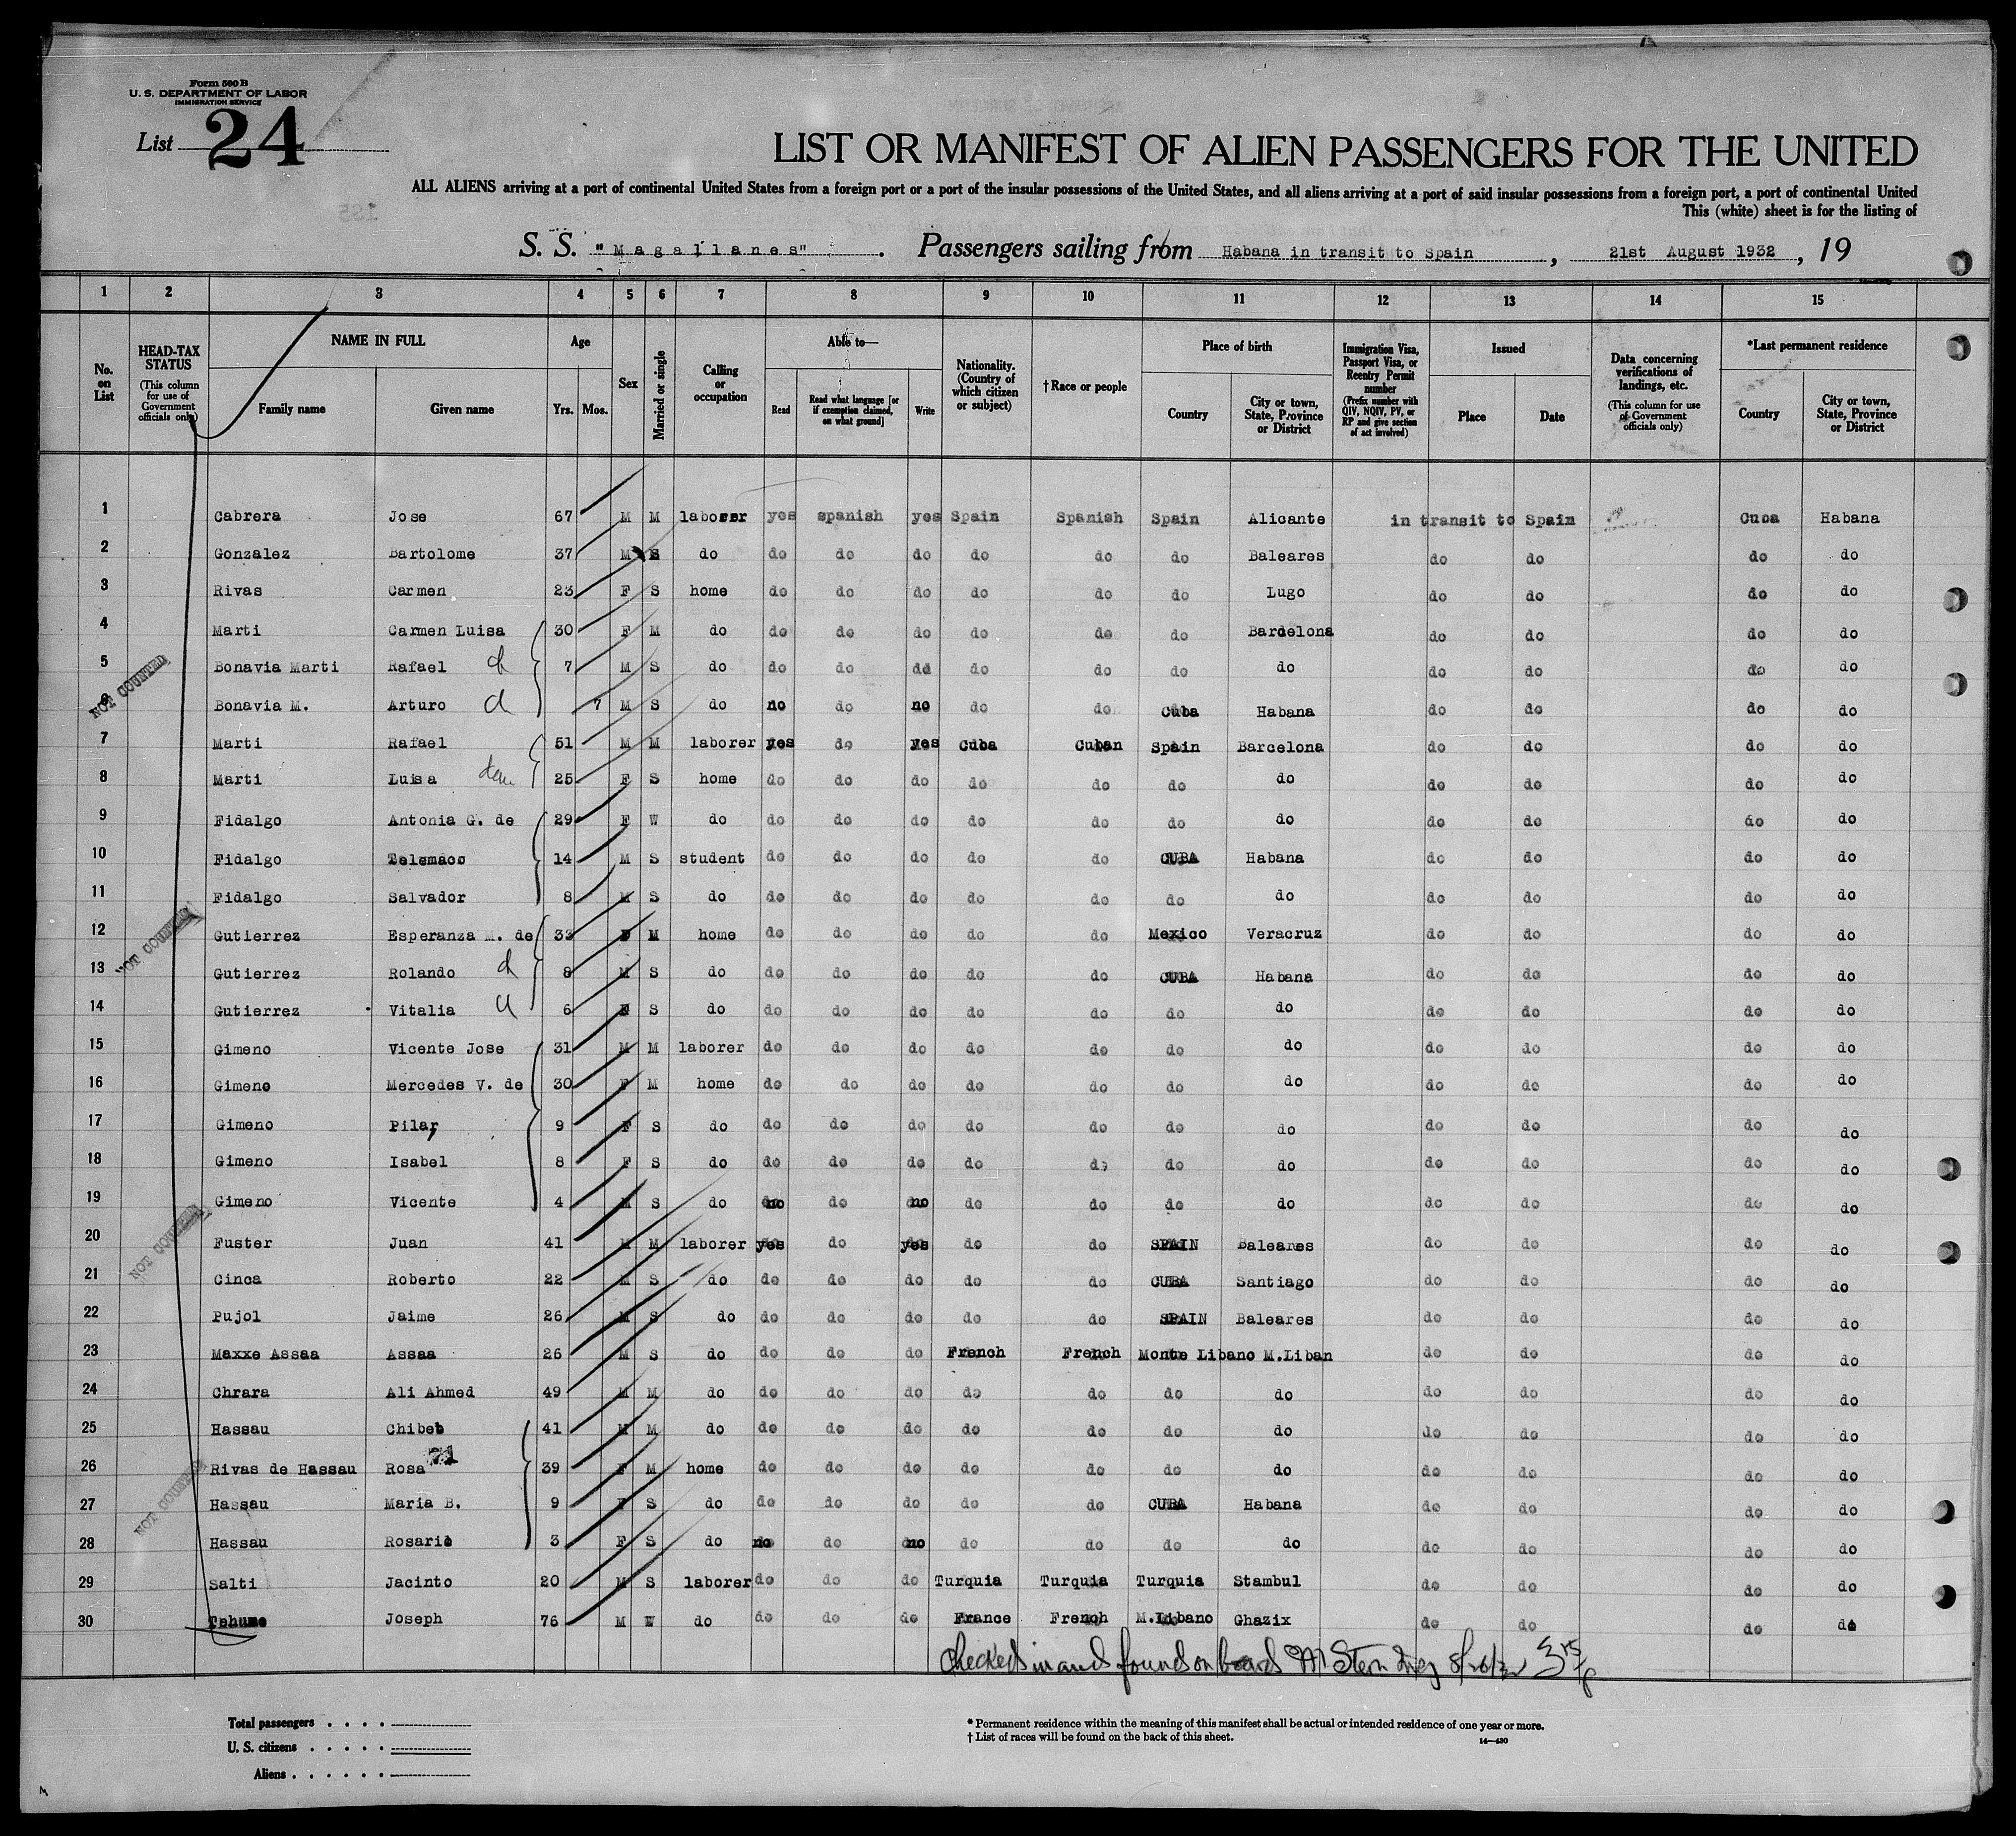 Form 500 B
U. S. DEPARTMENT OF LABOR
IMMIGRATION SERVICE
List 24
LIST OR MANIFEST OF ALIEN PASSENGERS FOR THE UNITED
ALL ALIENS arriving at a port of continental United States from a foreign port or a port of the insular possessions of the United States, and all aliens arriving at a port of said insular possessions from a foreign port, a port of continental United
This (white) sheet is for the listing of
S. S. "Magallanes". Passengers sailing from Habana in transit to Spain, 21st August 1932, 19
1 2 3 4 5 6 7 8 9 10 11 12 13 14 15
No. on List
HEAD-TAX STATUS (This column for use of Government officials only)
NAME IN FULL Family name Given name
Age Yrs. Mos.
Sex
Married or single
Calling or occupation
Able to— Read Read what language [or if exemption claimed, on what ground] Write
Nationality. (Country of which citizen or subject)
† Race or people
Place of birth Country City or town, State, Province or District
Immigration Visa, Passport Visa, or Reentry Permit number (Prefix number with QIV, NQIV, PV, or RP and give section of act involved)
Issued Place Date
Data concerning verifications of landings, etc. (This column for use of Government officials only)
*Last permanent residence Country City or town, State, Province or District
1 Cabrera Jose 67 M M laborer yes spanish yes Spain Spanish Spain Alicante in transit to Spain Cuba Habana
2 Gonzalez Bartolome 37 M S do do do do do do do Baleares do do do do
3 Rivas Carmen 23 F S home do do do do do do Lugo do do do do
4 Marti Carmen Luisa 30 F M do do do do do do do Barcelona do do do do
5 Bonavia Marti Rafael d 7 M S do do do do do do do do do do do do
NOT COUNTED
6 Bonavia M. Arturo d 7 M S do no do no do do Cuba Habana do do do do
7 Marti Rafael 51 M M laborer yes do yes Cuba Cuban Spain Barcelona do do do do
8 Marti Luisa 25 F S home do do do do do do do do do do do
9 Fidalgo Antonia G. de 29 F W do do do do do do do do do do do do
10 Fidalgo Telemaco 14 M S student do do do do do CUBA Habana do do do do
11 Fidalgo Salvador 8 M S do do do do do do do do do do do do
12 Gutierrez Esperanza M. de 33 F M home do do do do do Mexico Veracruz do do do do
NOT COUNTED
13 Gutierrez Rolando d 8 M S do do do do do do CUBA Habana do do do do
14 Gutierrez Vitalia d 6 F S do do do do do do do do do do do do
15 Gimeno Vicente Jose 31 M M laborer do do do do do do do do do do do
16 Gimeno Mercedes V. de 30 F M home do do do do do do do do do do do
17 Gimeno Pilar 9 F S do do do do do do do do do do do do
18 Gimeno Isabel 8 F S do do do do do do do do do do do do
19 Gimeno Vicente 4 M S do no do no do do do do do do do do
NOT COUNTED
20 Fuster Juan 41 M M laborer yes do yes do do SPAIN Baleares do do do do
21 Cinca Roberto 22 M S do do do do do do CUBA Santiago do do do do
22 Pujol Jaime 26 M S do do do do do do SPAIN Baleares do do do do
23 Maxxe Assaa Assaa 26 M S do do do do French French Monte Libano M.Liban do do do do
24 Chrara Ali Ahmed 49 M M do do do do do do do do do do do do
25 Hassau Chibeb 41 M M do do do do do do do do do do do do
26 Rivas de Hassau Rosa 71 39 F M home do do do do do do do do do do do
NOT COUNTED
27 Hassau Maria B. 9 F S do do do do do do CUBA Habana do do do do
28 Hassau Rosario 3 F S do no do no do do do do do do do do
29 Salti Jacinto 20 M S laborer do do do Turquia Turquia Turquia Stambul do do do do
30 Tehume Joseph 76 M W do do do do France French M.Libano Ghazix do do do do
Checked in and found on board M Stern 8/26/32 3 15/p
Total passengers
U. S. citizens
Aliens
* Permanent residence within the meaning of this manifest shall be actual or intended residence of one year or more.
† List of races will be found on the back of this sheet.
14—430